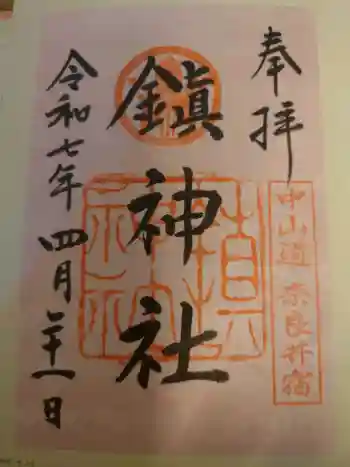 奉拝
中山道 奈良井宿
鎮神社
令和七年 四月二十一日